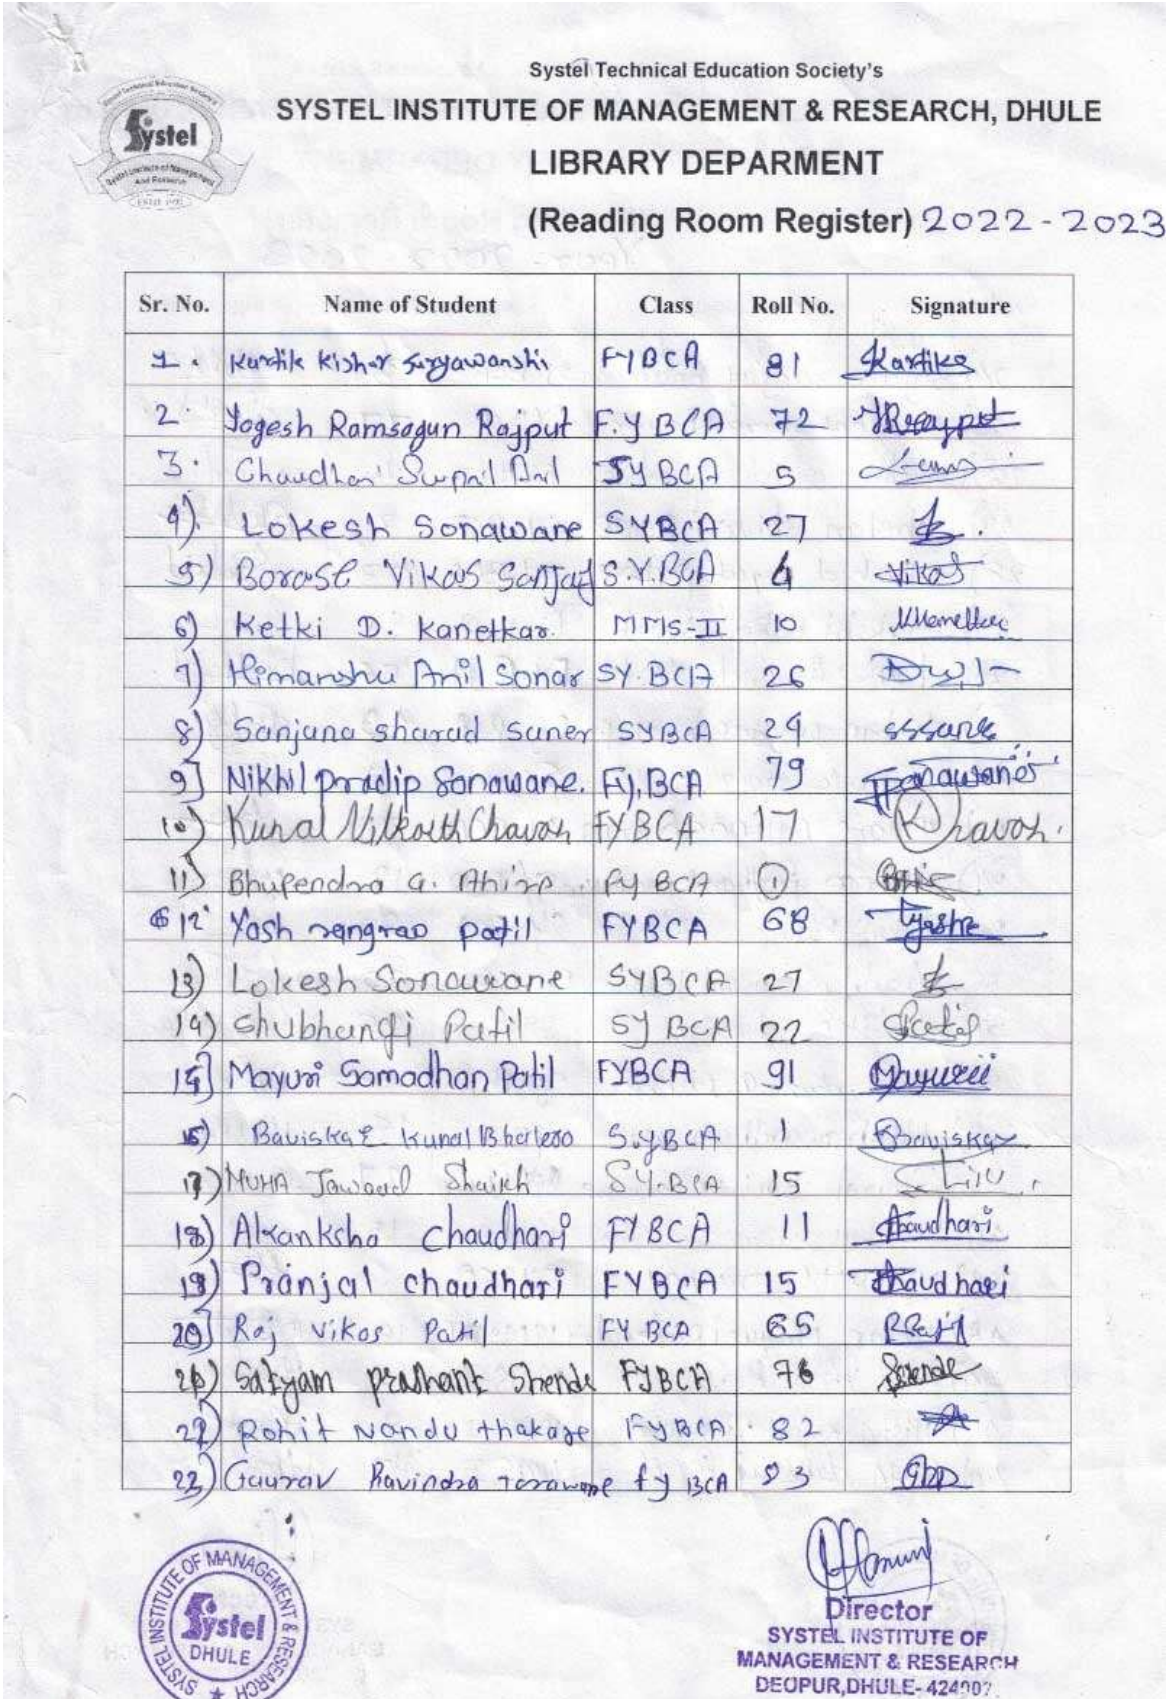 Systel Technical Education Society's
SYSTEL INSTITUTE OF MANAGEMENT & RESEARCH, DHULE
LIBRARY DEPARMENT
(Reading Room Register) 2022-2023
Systel
Sr. No. Name of Student Class Roll No. Signature
1. Kartik Kishor Suryawanshi FYBCA 81 Kartike
2. Yogesh Ramsagun Rajput F.Y BCA 72
3. Chaudhari Swpnil Anil SYBCA 5
4). Lokesh Sonawane SYBCA 27
5) Borase Vikas Sanjay S.Y.BCA 4 Vikas
6) Ketki D. Kanetkar. MMS-II 10
7) Himanshu Anil Sonar SY.BCA 26
8) Sanjana Sharad Saner SYBCA 24
9] Nikhil Pradip Sonawane. FY.BCA 79
10) Kunal Chavan FYBCA 17
11) Bhupendra G. Ahire FY BCA 1
12 Yash rangrao patil FYBCA 68
13) Lokesh Sonawane SYBCA 27
14) Shubhangi Patil SY BCA 22
15] Mayuri Samadhan Patil FYBCA 91 Mayurii
Kunal S.yBCA 1 Baviskar
17) MUHA Jawaad Shaikh SY.BCA 15
18) Akanksha chaudhari FYBCA 11 chaudhari
19) Pranjal chaudhari FYBCA 15 chaudhari
20] Raj Vikas Patil FY BCA 65
21) Satyam prashant Shende FYBCA 76 Shende
22) Rohit Nandu thakare FYBCA 82
23) Gaurav Ravindra fy BCA 93
SYSTEL INSTITUTE OF MANAGEMENT & RESEARCH
Systel
DHULE
Director
SYSTEL INSTITUTE OF
MANAGEMENT & RESEARCH
DEOPUR,DHULE- 424002